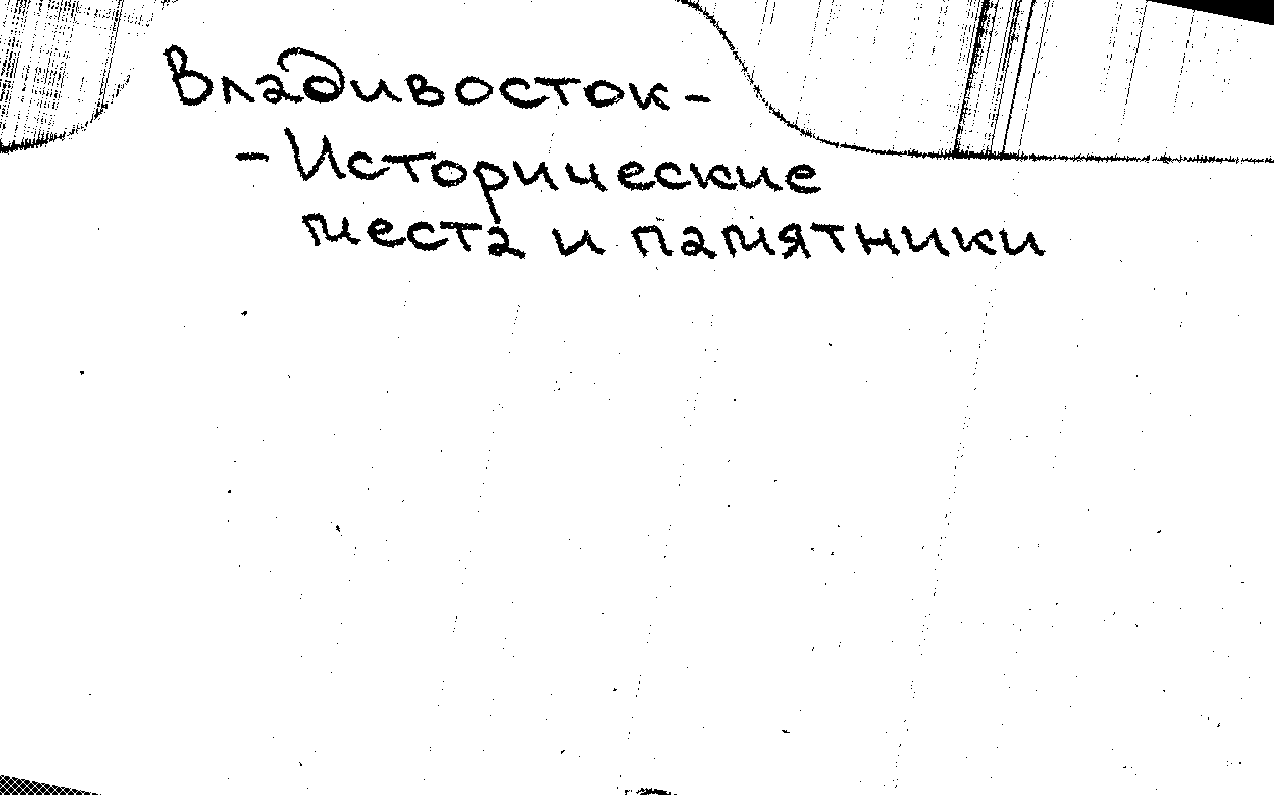 Владивосток -
- Исторические
места и памятники